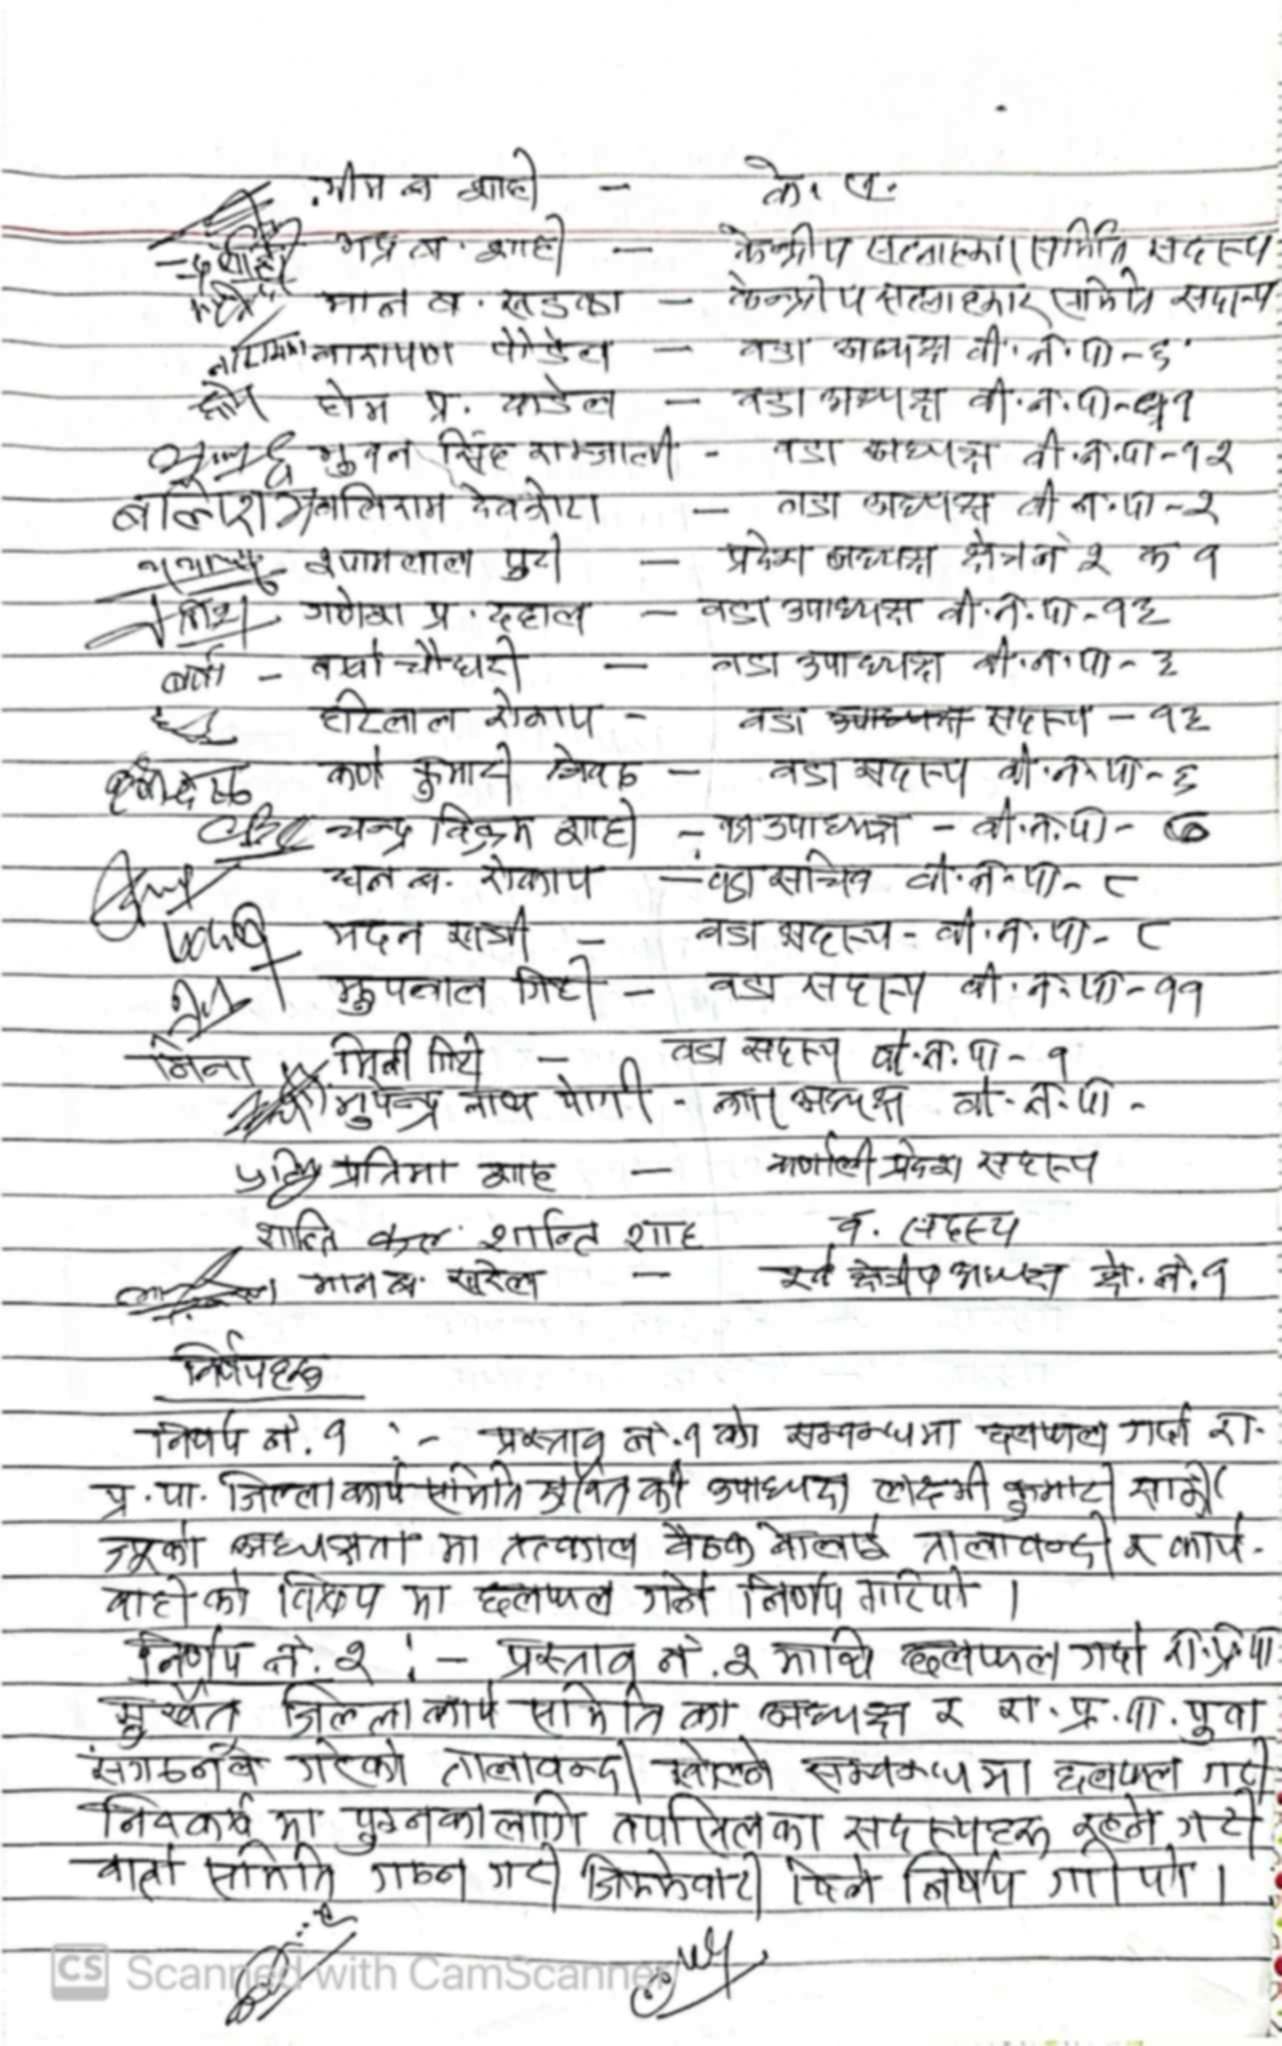 भीम ब शाही - के. स.
शाही भद्र ब. शाही - केन्द्रीय सल्लाहकार समिति सदस्य
मान ब. खड्का - केन्द्रीय सल्लाहकार समिति सदस्य
नारायण नारायण पौडेल - वडा अध्यक्ष वी.न.पा-६
होम होम प्र. कंडेल - वडा अध्यक्ष वी.न.पा-११
भुवन सिंह राम्जाली - वडा अध्यक्ष वी.न.पा-१२
बलिराम बलिराम देवकोटा - वडा अध्यक्ष वी न.पा-२
श्यामलाल पुरी - प्रदेश अध्यक्ष क्षेत्र नं २ क १
गणेश प्र. दहाल - वडा उपाध्यक्ष वी.न.पा-१३
वर्खा - वर्खा चौधरी - वडा उपाध्यक्ष वी.न.पा-३
हरिलाल रोकाय - वडा उपाध्यक्ष सदस्य - १३
कर्ण कुमारी - वडा सदस्य वी.न.पा-६
चन्द्र विक्रम शाही - वडा उपाध्यक्ष - वी.न.पा- ७
धन ब. रोकाय - वडा सचिव वी.न.पा- ८
मदन खत्री - वडा सदस्य - वी.न.पा- ८
झुपलाल गिरी - वडा सदस्य वी.न.पा-११
मिना गिरी - वडा सदस्य वी.न.पा-१
भुपेन्द्र नाथ योगी - अध्यक्ष वी.न.पा-
प्रतिमा शाह - कर्णाली प्रदेश सदस्य
शान्ति शान्ति शाह व. सदस्य
मान ब. खरेल - क्षेत्रीय अध्यक्ष क्षे.नं.१
निर्णयहरू
निर्णय नं. १ :- प्रस्ताव नं.१ को सम्बन्धमा छलफल गर्दा रा.
प्र.पा. जिल्ला कार्य समिति सुर्खेत की उपाध्यक्ष लक्ष्मी कुमारी
ज्यूको अध्यक्षता मा तत्काल बैठक बोलाई तालाबन्दी र कार्य-
वाही को विषय मा छलफल गर्ने निर्णय गरियो ।
निर्णय नं. २ :- प्रस्ताव नं. २ माथि छलफल गर्दा रा.प्र.पा
सुर्खेत जिल्ला कार्य समिति का अध्यक्ष र रा.प्र.पा. युवा
संगठनले गरेको तालाबन्दी खोल्ने सम्बन्धमा छलफल गरी
निष्कर्ष मा पुग्नका लागि तपसिलका सदस्यहरू रहने गरी
वार्ता समिति गठन गरी जिम्मेवारी दिने निर्णय गरियो ।
CS Scanned with CamScanner